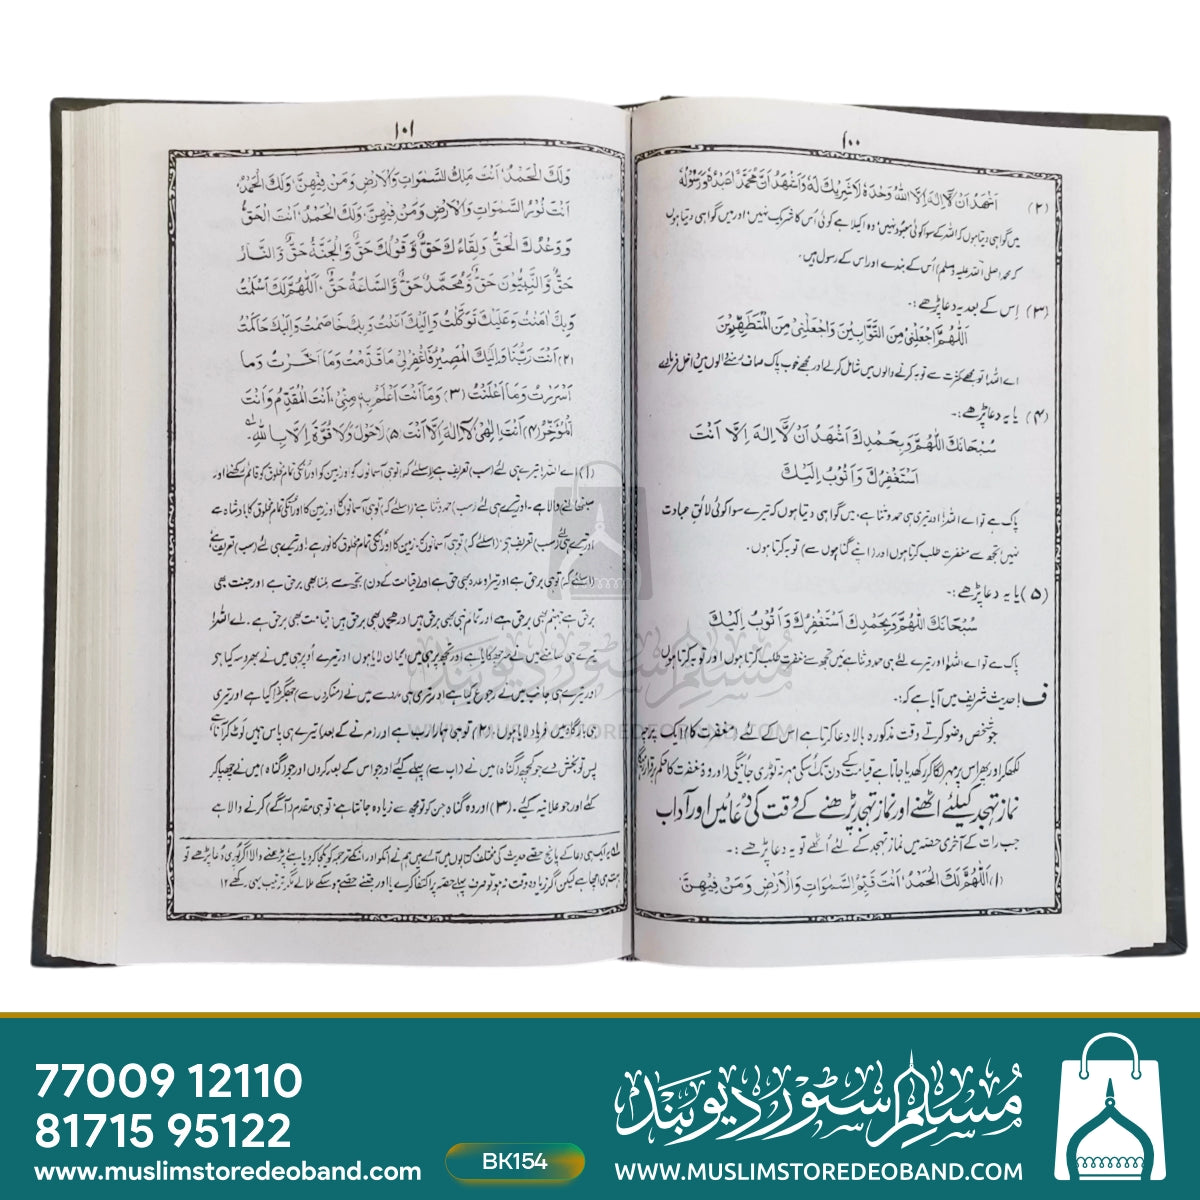 ۱۰۰
(۲) اَشْهَدُ اَنْ لَّا اِلٰهَ اِلَّا اللّٰهُ وَحْدَهٗ لَا شَرِيْكَ لَهٗ وَاَشْهَدُ اَنَّ مُحَمَّدًا عَبْدُهٗ وَرَسُوْلُهٗ
میں گواہی دیتا ہوں کہ اللہ کے سوا کوئی معبود نہیں، وہ اکیلا ہے کوئی اُس کا شریک نہیں، اور میں گواہی دیتا ہوں
کہ محمد (صلی اللہ علیہ وسلم) اُس کے بندے اور اس کے رسول ہیں۔
(۳) اِس کے بعد یہ دعا پڑھے:۔
اَللّٰهُمَّ اجْعَلْنِيْ مِنَ التَّوَّابِيْنَ وَاجْعَلْنِيْ مِنَ الْمُتَطَهِّرِيْنَ
اے اللہ! تو مجھے کثرت سے توبہ کرنے والوں میں شامل کرلے اور مجھے خوب پاک صاف رہنے والوں میں داخل فرما دے
(۴) یا یہ دعا پڑھے:۔
سُبْحَانَكَ اللّٰهُمَّ وَبِحَمْدِكَ اَشْهَدُ اَنْ لَّا اِلٰهَ اِلَّا اَنْتَ
اَسْتَغْفِرُكَ وَاَتُوْبُ اِلَيْكَ
پاک ہے تو اے اللہ! اور تیری ہی حمد و ثنا ہے، میں گواہی دیتا ہوں کہ تیرے سوا کوئی لائقِ عبادت
نہیں! تجھ سے مغفرت طلب کرتا ہوں اور (اپنے گناہوں سے) توبہ کرتا ہوں۔
(۵) یا یہ دعا پڑھے:۔
سُبْحَانَكَ اللّٰهُمَّ وَبِحَمْدِكَ اَسْتَغْفِرُكَ وَاَتُوْبُ اِلَيْكَ
پاک ہے تو اے اللہ! اور تیرے لئے ہی حمد و ثنا ہے میں تجھ سے مغفرت طلب کرتا ہوں اور توبہ کرتا ہوں
ف! حدیث شریف میں آیا ہے کہ:۔
جو شخص وضو کرتے وقت مذکورہ بالا دعا کرتا ہے اس کے لئے (مغفرت کا) ایک پرچہ
لکھکر اور پھر اس پر مہر لگا کر رکھ دیا جاتا ہے قیامت کے دن تک اُسکی مہر نہ توڑی جائیگی (اور وہ مغفرت کا حکم برقرار رہیگا)
نمازِ تہجد کیلئے اٹھنے اور نماز تہجد پڑھنے کے وقت کی دُعائیں اور آداب
جب رات کے آخری حصّہ میں نماز تہجد کے لئے اُٹھے تو یہ دعا پڑھے:۔
(۱) اَللّٰهُمَّ لَكَ الْحَمْدُ، اَنْتَ قَيِّمُ السَّمٰوَاتِ وَالْاَرْضِ وَمَنْ فِيْهِنَّ،
۱۰۱
وَلَكَ الْحَمْدُ، اَنْتَ مَلِكُ السَّمٰوَاتِ وَالْاَرْضِ وَمَنْ فِيْهِنَّ، وَلَكَ الْحَمْدُ،
اَنْتَ نُوْرُ السَّمٰوَاتِ وَالْاَرْضِ وَمَنْ فِيْهِنَّ، وَلَكَ الْحَمْدُ، اَنْتَ الْحَقُّ
وَوَعْدُكَ الْحَقُّ وَلِقَاءُكَ حَقٌّ وَّقَوْلُكَ حَقٌّ وَّالْجَنَّةُ حَقٌّ وَّالنَّارُ
حَقٌّ وَّالنَّبِيُّوْنَ حَقٌّ وَّمُحَمَّدٌ حَقٌّ وَّالسَّاعَةُ حَقٌّ، اَللّٰهُمَّ لَكَ اَسْلَمْتُ
وَبِكَ اٰمَنْتُ وَعَلَيْكَ تَوَكَّلْتُ وَاِلَيْكَ اَنَبْتُ وَبِكَ خَاصَمْتُ وَاِلَيْكَ حَاكَمْتُ
(۲) اَنْتَ رَبُّنَا وَاِلَيْكَ الْمَصِيْرُ فَاغْفِرْ لِيْ مَا قَدَّمْتُ وَمَا اَخَّرْتُ وَمَا
اَسْرَرْتُ وَمَا اَعْلَنْتُ (۳) وَمَا اَنْتَ اَعْلَمُ بِهٖ مِنِّيْ، اَنْتَ الْمُقَدِّمُ وَاَنْتَ
الْمُؤَخِّرُ (۴) اَنْتَ اِلٰهِيْ لَا اِلٰهَ اِلَّا اَنْتَ (۵) لَا حَوْلَ وَلَا قُوَّةَ اِلَّا بِاللّٰهِ۔
(۱) اے اللہ! تیرے ہی لئے (سب) تعریف ہے (اسلئے کہ) تو ہی آسمانوں کو اور زمین کو اور انکی تمام مخلوق کو قائم رکھنے اور
سنبھالنے والا ہے۔ اور تیرے ہی لئے (سب) حمد و ثنا ہے (اسلئے کہ) تو ہی آسمانوں کا اور زمین کا اور انکی تمام مخلوق کا بادشاہ ہے
اور تیرے ہی لئے (سب) تعریف ہے (اسلئے کہ) تو ہی آسمانوں کا، زمین کا اور انکی تمام مخلوق کا نور ہے! اور تیرے ہی لئے (سب) تعریف ہے
(اسلئے کہ) تو ہی برحق ہے اور تیرا وعدہ بھی حق ہے اور (قیامت کے دن) تجھ سے ملنا بھی برحق ہے اور جنت بھی
برحق ہے جہنم بھی برحق ہے اور تمام نبی بھی برحق ہیں اور محمد بھی برحق ہیں، قیامت بھی برحق ہے۔ اے اللہ!
تیرے ہی سامنے میں نے سر جھکایا ہے اور تجھ پر ہی میں ایمان لایا ہوں اور تیرے اُوپر ہی میں نے بھروسہ کیا ہے
اور تیرے ہی جانب میں نے رجوع کیا ہے اور تیری ہی مدد سے میں نے (منکروں سے) جھگڑا کیا ہے اور تیری
ہی بارگاہ میں فریاد لایا ہوں، (۲) تو ہی ہمارا رب ہے اور (مرنے کے بعد) تیرے ہی پاس ہمیں لوٹکر آنا ہے
پس تو بخش دے جو کچھ (گناہ) میں نے (اب سے) پہلے کیئے اور جو اس کے بعد کروں اور جو (گناہ) میں نے چھپا کر
کئے اور جو علانیہ کیئے۔ (۳) اور وہ گناہ جن کو تو مجھ سے زیادہ جانتا ہے، تو ہی مقدم (آگے) کرنے والا ہے
مسلم سٹور دیوبند
WWW.MUSLIMSTOREDEOBAND.COM
77009 12110
81715 95122
www.muslimstoredeoband.com
BK154
مُسلِم سٹور دیوبند
WWW.MUSLIMSTOREDEOBAND.COM